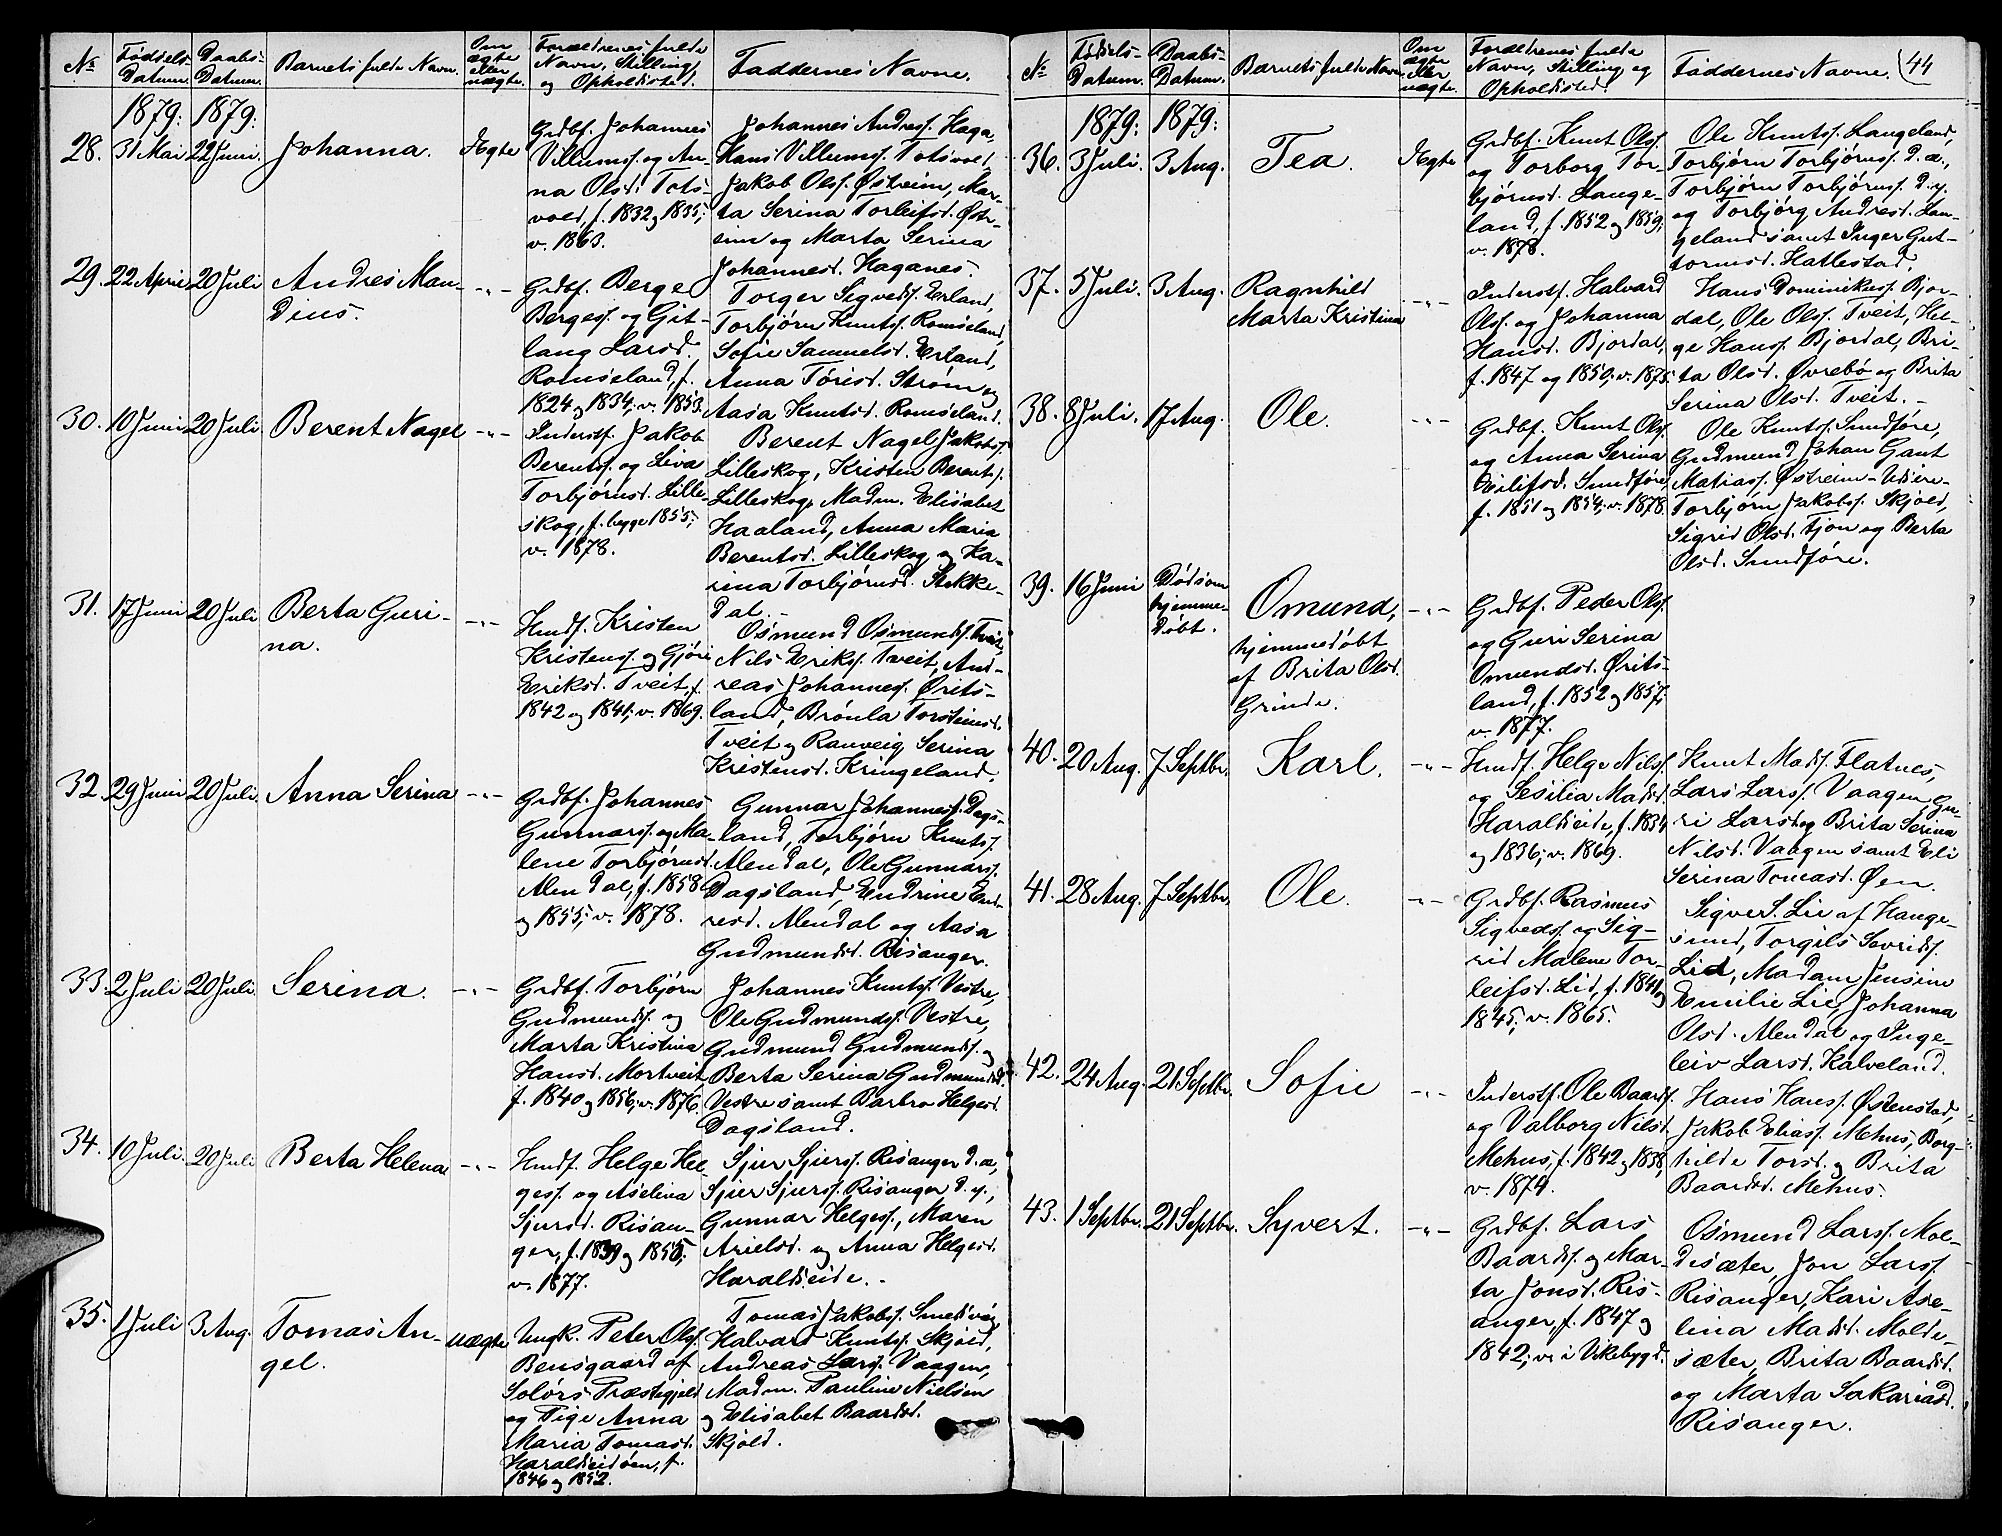 №
Fødsels-
Datum.
Daabs-
Datum.
Barnets fulde Navn.
Om
ægte
eller
uægte.
Forældrenes fulde
Navn, Stilling
og Opholdssted.
Faddernes Navne.
1879: 1879:
28. 31 Mai 22 Juni. Johanna. Ægte
Grdbf. Johannes
Villumss. og An-
na Olsd. Tots-
vold, f. 1832 og 1835;
v. 1863.
Johannes Andress. Haga-
Hans Villumss. Totsvold,
Jakob Olss. Østreim, Mar-
ta Serina Torleifsd. Øst-
reim og Marta Serina
Johannesd. Haganes.
29. 22 April 20 Juli Andres Man-
dius. -"-
Grdbf. Berge
Bergess. og Git-
lang Larsd.
Romseland, f.
1824 og 1834; v. 1853.
Torger Sigveds. Erland,
Torbjørn Knuts. Romseland,
Sofie Samuelsd. Erland,
Anna Tørisd. Strøm og
Aasa Knutsd. Romseland.
30. 10 Juni 20 Juli. Berent Nagel -"-
Inderstf. Jakob
Berents. og Liva
Torbjørnsd. Lille-
skog, f. begge 1855;
v. 1878.
Berent Nagel Jakobss.
Lilleskog, Kristen Berents.
Lilleskog, Madm. Elisabet
Haaland, Anna Maria
Berentsd. Lilleskog og Ka-
rina Torbjørnsd. Stakke-
dal.
31. 17 Juni 20 Juli Berta Guri-
na. -"-
Hmdf. Kristen
Kristenss. og Gjøri
Eriksd. Tveit, f.
1842 og 1841; v. 1869.
Osmund Osmunds. Tveit,
Nils Eriks. Tveit, And-
reas Johanness. Ørits-
land, Brønla Torsteinsd.
Tveit og Ranveig Serina
Kristensd. Kringeland.
32. 29 Juni 20 Juli. Anna Serina -"-
Grdbf. Johannes
Gunnarss. og Ma-
lene Torbjørnsd.
Alendal, f. 1858
og 1855; v. 1878.
Gunnar Johanness. Dags-
land, Torbjørn Knuts.
Alendal, Ole Gunnarss.
Dagsland, Endrine End-
resd. Alendal og Aasa
Gudmundsd. Risanger.
33. 2 Juli 20 Juli. Serina. -"-
Grdbf. Torbjørn
Gudmunds. og
Marta Kristina
Hansd. Mortveit,
f. 1840 og 1856; v. 1876.
Johannes Knuts. Vestre,
Ole Gudmunds. Vestre,
Gudmund Gudmunds. og
Berta Serina Gudmundsd.
Vestre samt Barbro Helgesd.
Dagsland.
34. 10 Juli. 20 Juli Berta Helena -"-
Hmdf. Helge Hel-
gess. og Aselina
Sjursd. Risan-
ger, f. 1839 og 1850;
v. 1877.
Sjur Sjurss. Risanger d. æ,
Sjur Sjurss. Risanger d. y.,
Gunnar Helgess., Maren
Arielsd. og Anna Helgesd.
Haraldseide.
35. 1 Juli 3 Aug. Tomas An-
gel. uægte
Ungk. Peter Olss.
Bensgaard af
Solørs Præstegjeld
og Pige Anna
Maria Tomasd.
Haraldseidøen, f.
1846 og 1852.
Tomas Jakobs. Smedsvig,
Halvard Knuts. Skjold,
Andreas Larss. Vaagen,
Madm. Pauline Nielsen
og Elisabet Baardsd.
Skjold.
№
Fødsels-
Datum.
Daabs-
Datum.
Barnets fulde Navn
Om
ægte
eller
uægte.
Forældrenes fulde
Navn, Stilling og
Opholdssted.
Faddernes Navne.
44
1879: 1879:
36. 3 Juli. 3 Aug. Tea. Ægte
Grdbf. Knut Olss.
og Torborg Tor-
bjørnsd. Lange-
land, f. 1852 og 1859;
v. 1878.
Ole Knuts. Langeland,
Torbjørn Torbjørnss. d. æ.,
Torbjørn Torbjørnss. d. y.
og Torbjørg Andresd. Lan-
geland samt Inger Gut-
tormsd. Hatlestad.
37. 5 Juli. 3 Aug. Ragnhild
Marta Kristina -"-
Inderstf. Halvard
Olss. og Johanna
Hansd. Bjordal,
f. 1847 og 1850; v. 1875.
Hans Dominikuss. Bjor-
dal, Ole Olss. Tveit, Hel-
ge Hanss. Bjordal, Bri-
ta Olsd. Øvrebø og Brita
Serina Olsd. Tveit.
38. 8 Juli. 17 Aug. Ole. -"-
Grdbf. Knut Olss.
og Anna Serina
Eilifsd. Sundføre,
f. 1851 og 1854; v. 1878.
Ole Knuts. Sundføre,
Gudmund Johan Gant
Matiass. Østreim-Vidsre-
Torbjørn Jakobs. Skjold,
Sigrid Olsd. Tjon og Berta
Olsd. Sundføre.
39. 16 Juni Død som
hjemme-
døbt. Omund,
hjemmedøbt
af Brita Olsd.
Grinde. -"-
Grdbf. Peder Olss.
og Guri Serina
Omundsd. Ørits-
land, f. 1852 og 1857;
v. 1877.
40. 20 Aug. 7 Septbr. Karl. -"-
Hmdf. Helge Nilss.
og Sesilia Madsd.
Haraldseide, f. 1834
og 1836; v. 1869.
Knut Madss. Flatnes,
Lars Larss. Vaagen, Gu-
ri Larsd. og Brita Serina
Nilsd. Vaagen samt Eli
Serina Tomasd. Øen.
41. 28 Aug. 7 Septbr. Ole. -"-
Grdbf. Rasmus
Sigveds. og Sig-
rid Malene Tor-
leifsd. Lid, f. 1841 og
1845; v. 1865.
Sigver S. Lie af Hauge-
sund, Torgils Sevrids.
Lid, Madam Jensine
Emilie Lie, Johanna
Olsd. Alendal og Inge-
leiv Larsd. Kalveland.
42. 24 Aug. 21 Septbr. Sofie -"-
Inderstf. Ole Baards.
og Valborg Nilsd.
Mehus, f. 1842 og 1838,
v. 1874.
Hans Hanss. Østenstad,
Jakob Eliass. Mehus, Borg-
hilde Torsd. og Brita
Baardsd. Mehus.
43. 1 Septbr. 21 Septbr. Syvert. -"-
Grdbf. Lars
Baards. og Mar-
ta Jonsd. Ris-
anger, f. 1847 og
1842; v. i Vikebygd.
Osmund Larss. Mol-
desæter, Jon Larss.
Risanger, Kari Ase-
lina Madsd. Molde-
sæter, Brita Baardsd.
og Marta Sakariasd.
Risanger.